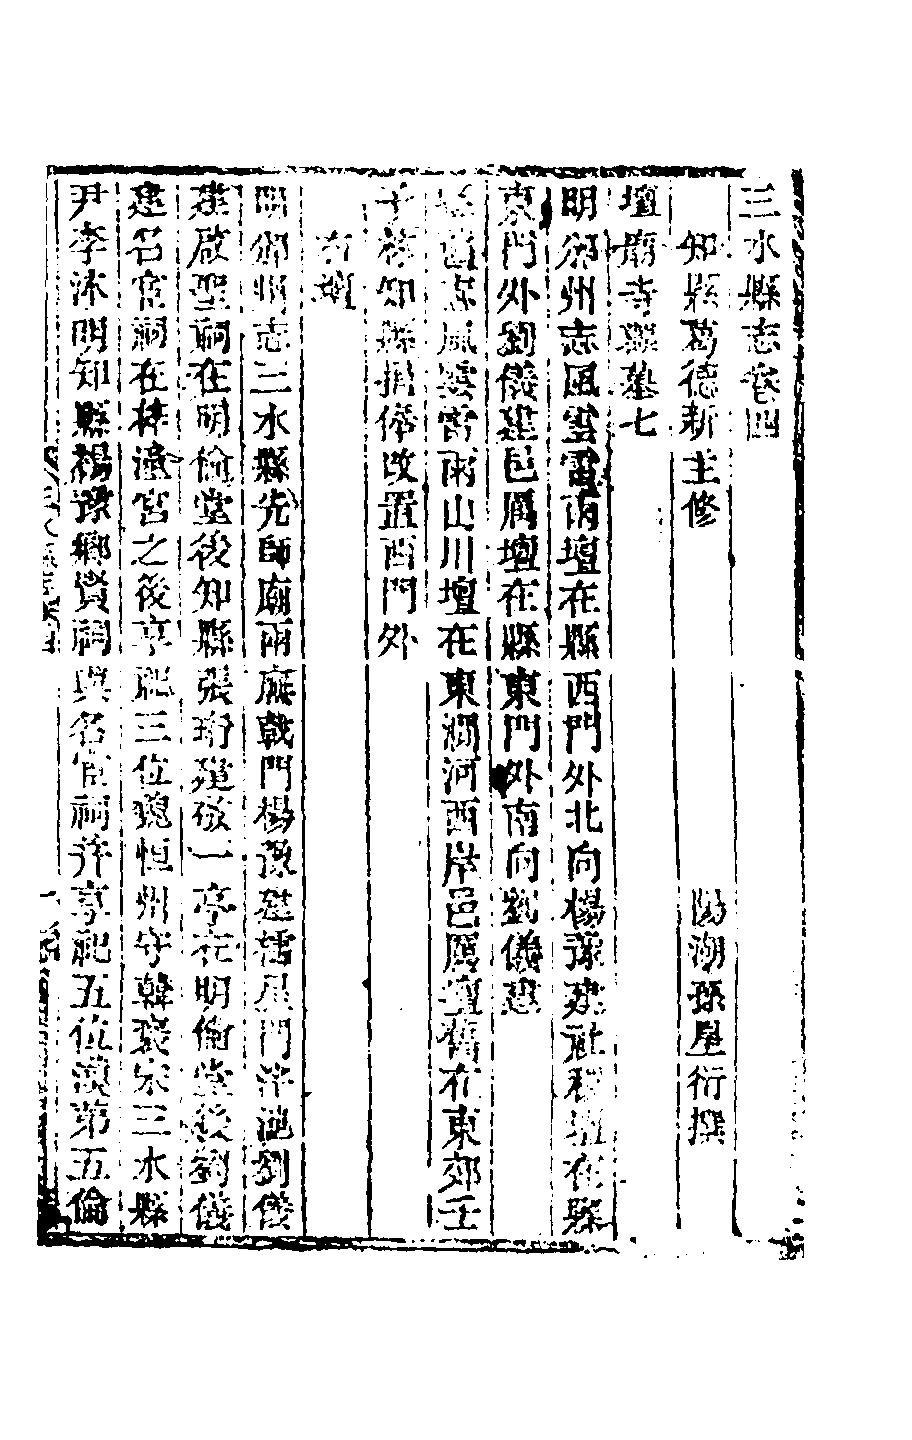 三水縣志卷四
知縣葛德新主修
陽湖孫星衍撰
壇廟寺觀墓七
明邠州志風雲雷雨壇在縣西門外北向楊豫建社稷壇在縣
東門外劉儀建邑厲壇在縣東門外南向劉儀建
縣舊志風雲雷雨山川壇在東澗河西岸邑厲壇舊在東郊壬
子林知縣捐俸改置西門外
右壇
明邠州志三水縣先師廟兩廡戟門楊豫建櫺星門泮池劉儀
建啟聖祠在明倫堂後知縣張珩建敬一亭在明倫堂後劉儀
建名宦祠在梓潼宮之後享祀三位魏恒州守韓褒宋三水縣
尹李沐明知縣楊豫鄉賢祠與名宦祠并享祀五位漢第五倫